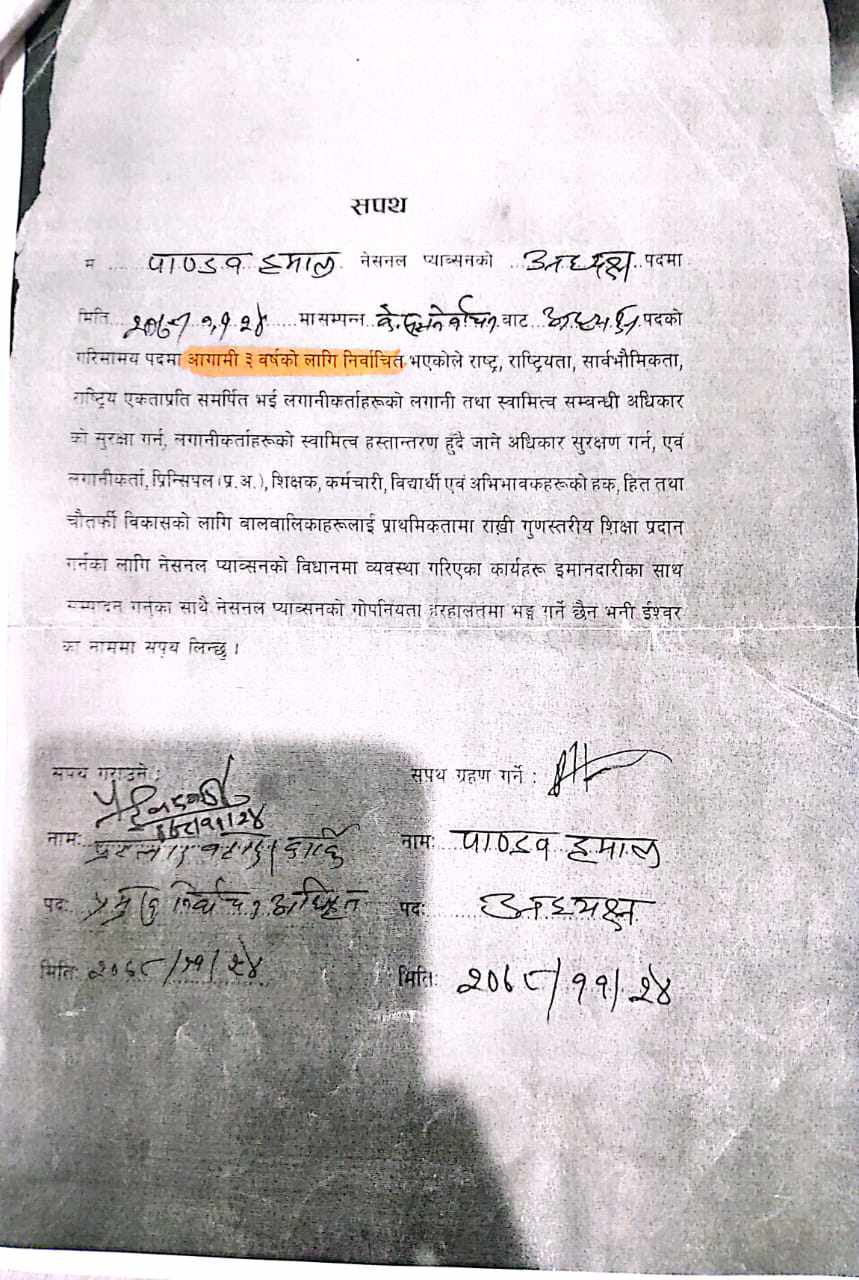 सपथ
म ..... पाण्डव हमाल नेसनल प्याब्सनको ..अध्यक्ष पदमा
मिति २०६८ ११ २४ .....मासम्पन्न के. निर्वाचन बाट अध्यक्ष पदको
गरिमामय पदमा आगामी ३ वर्षको लागि निर्वाचित भएकोले राष्ट्र, राष्ट्रियता, सार्वभौमिकता,
राष्ट्रिय एकताप्रति समर्पित भई लगानीकर्ताहरूको लगानी तथा स्वामित्व सम्बन्धी अधिकार
को सुरक्षा गर्न, लगानीकर्ताहरूको स्वामित्व हस्तान्तरण हुँदै जाने अधिकार सुरक्षण गर्न, एवं
लगानीकर्ता, प्रिन्सिपल (प्र.अ.), शिक्षक, कर्मचारी, विद्यार्थी एवं अभिभावकहरूको हक, हित तथा
चौतर्फी विकासको लागि वालवालिकाहरूलाई प्राथमिकतामा राखी गुणस्तरीय शिक्षा प्रदान
गर्नका लागि नेसनल प्याब्सनको विधानमा व्यवस्था गरिएका कार्यहरू इमानदारीका साथ
सम्पादन गर्नुका साथै नेसनल प्याब्सनको गोपनियता हरहालतमा भङ्ग गर्ने छैन भनी ईश्वर
का नाममा सपथ लिन्छु ।
सपथ गराउने :
सपथ ग्रहण गर्ने :
नाम:
नाम: पाण्डव हमाल
पद: प्रमुख निर्वाचन अधिकृत
पद: अध्यक्ष
मिति: २०६८/११/२४
मिति: २०६८/११/२४